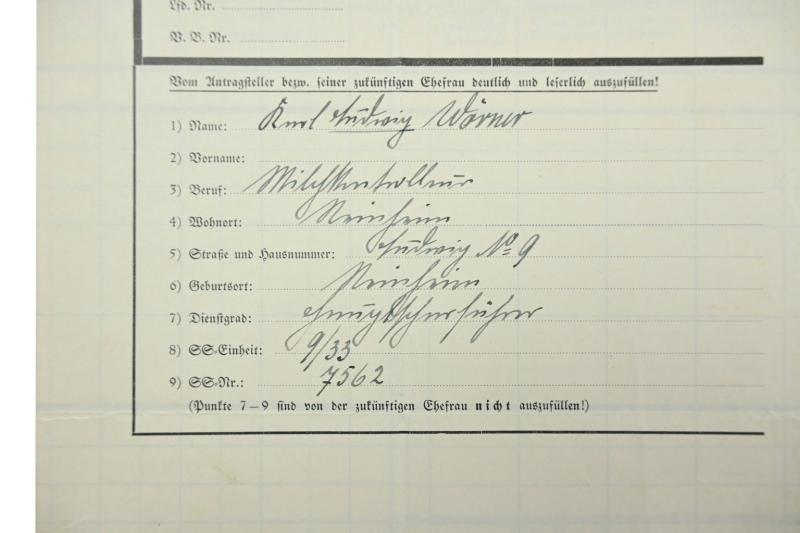 Lfd. Nr.
V. B. Nr.
Vom Antragsteller bezw. seiner zukünftigen Ehefrau deutlich und leserlich auszufüllen!
1) Name: Karl Ludwig Wörner
2) Vorname:
3) Beruf: Milchkontrolleur
4) Wohnort: Reinheim
5) Straße und Hausnummer: Ludwig No 9
6) Geburtsort: Reinheim
7) Dienstgrad: Hauptscharführer
8) SS-Einheit: 9/33
9) SS-Nr.: 7562
(Punkte 7–9 sind von der zukünftigen Ehefrau nicht auszufüllen!)